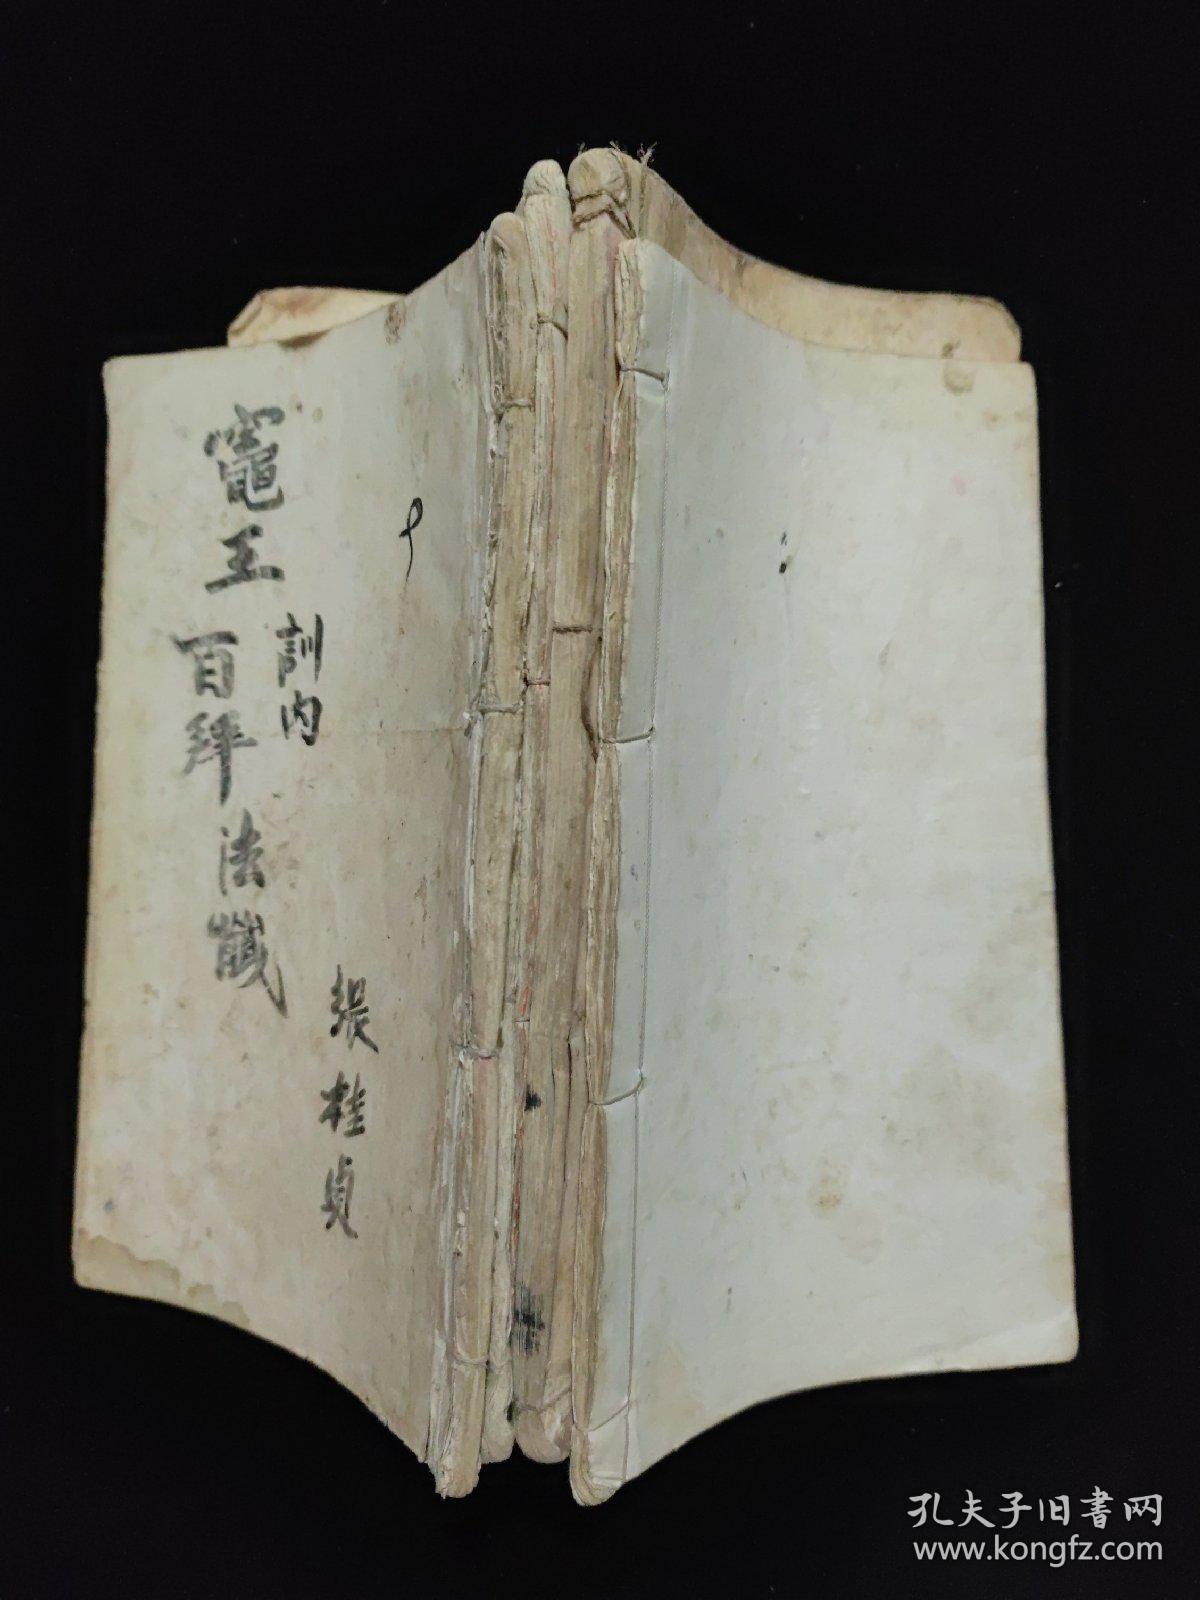 張桂貞
訓內
竈王
百拜法懺
孔夫子旧書网
www.kongfz.com